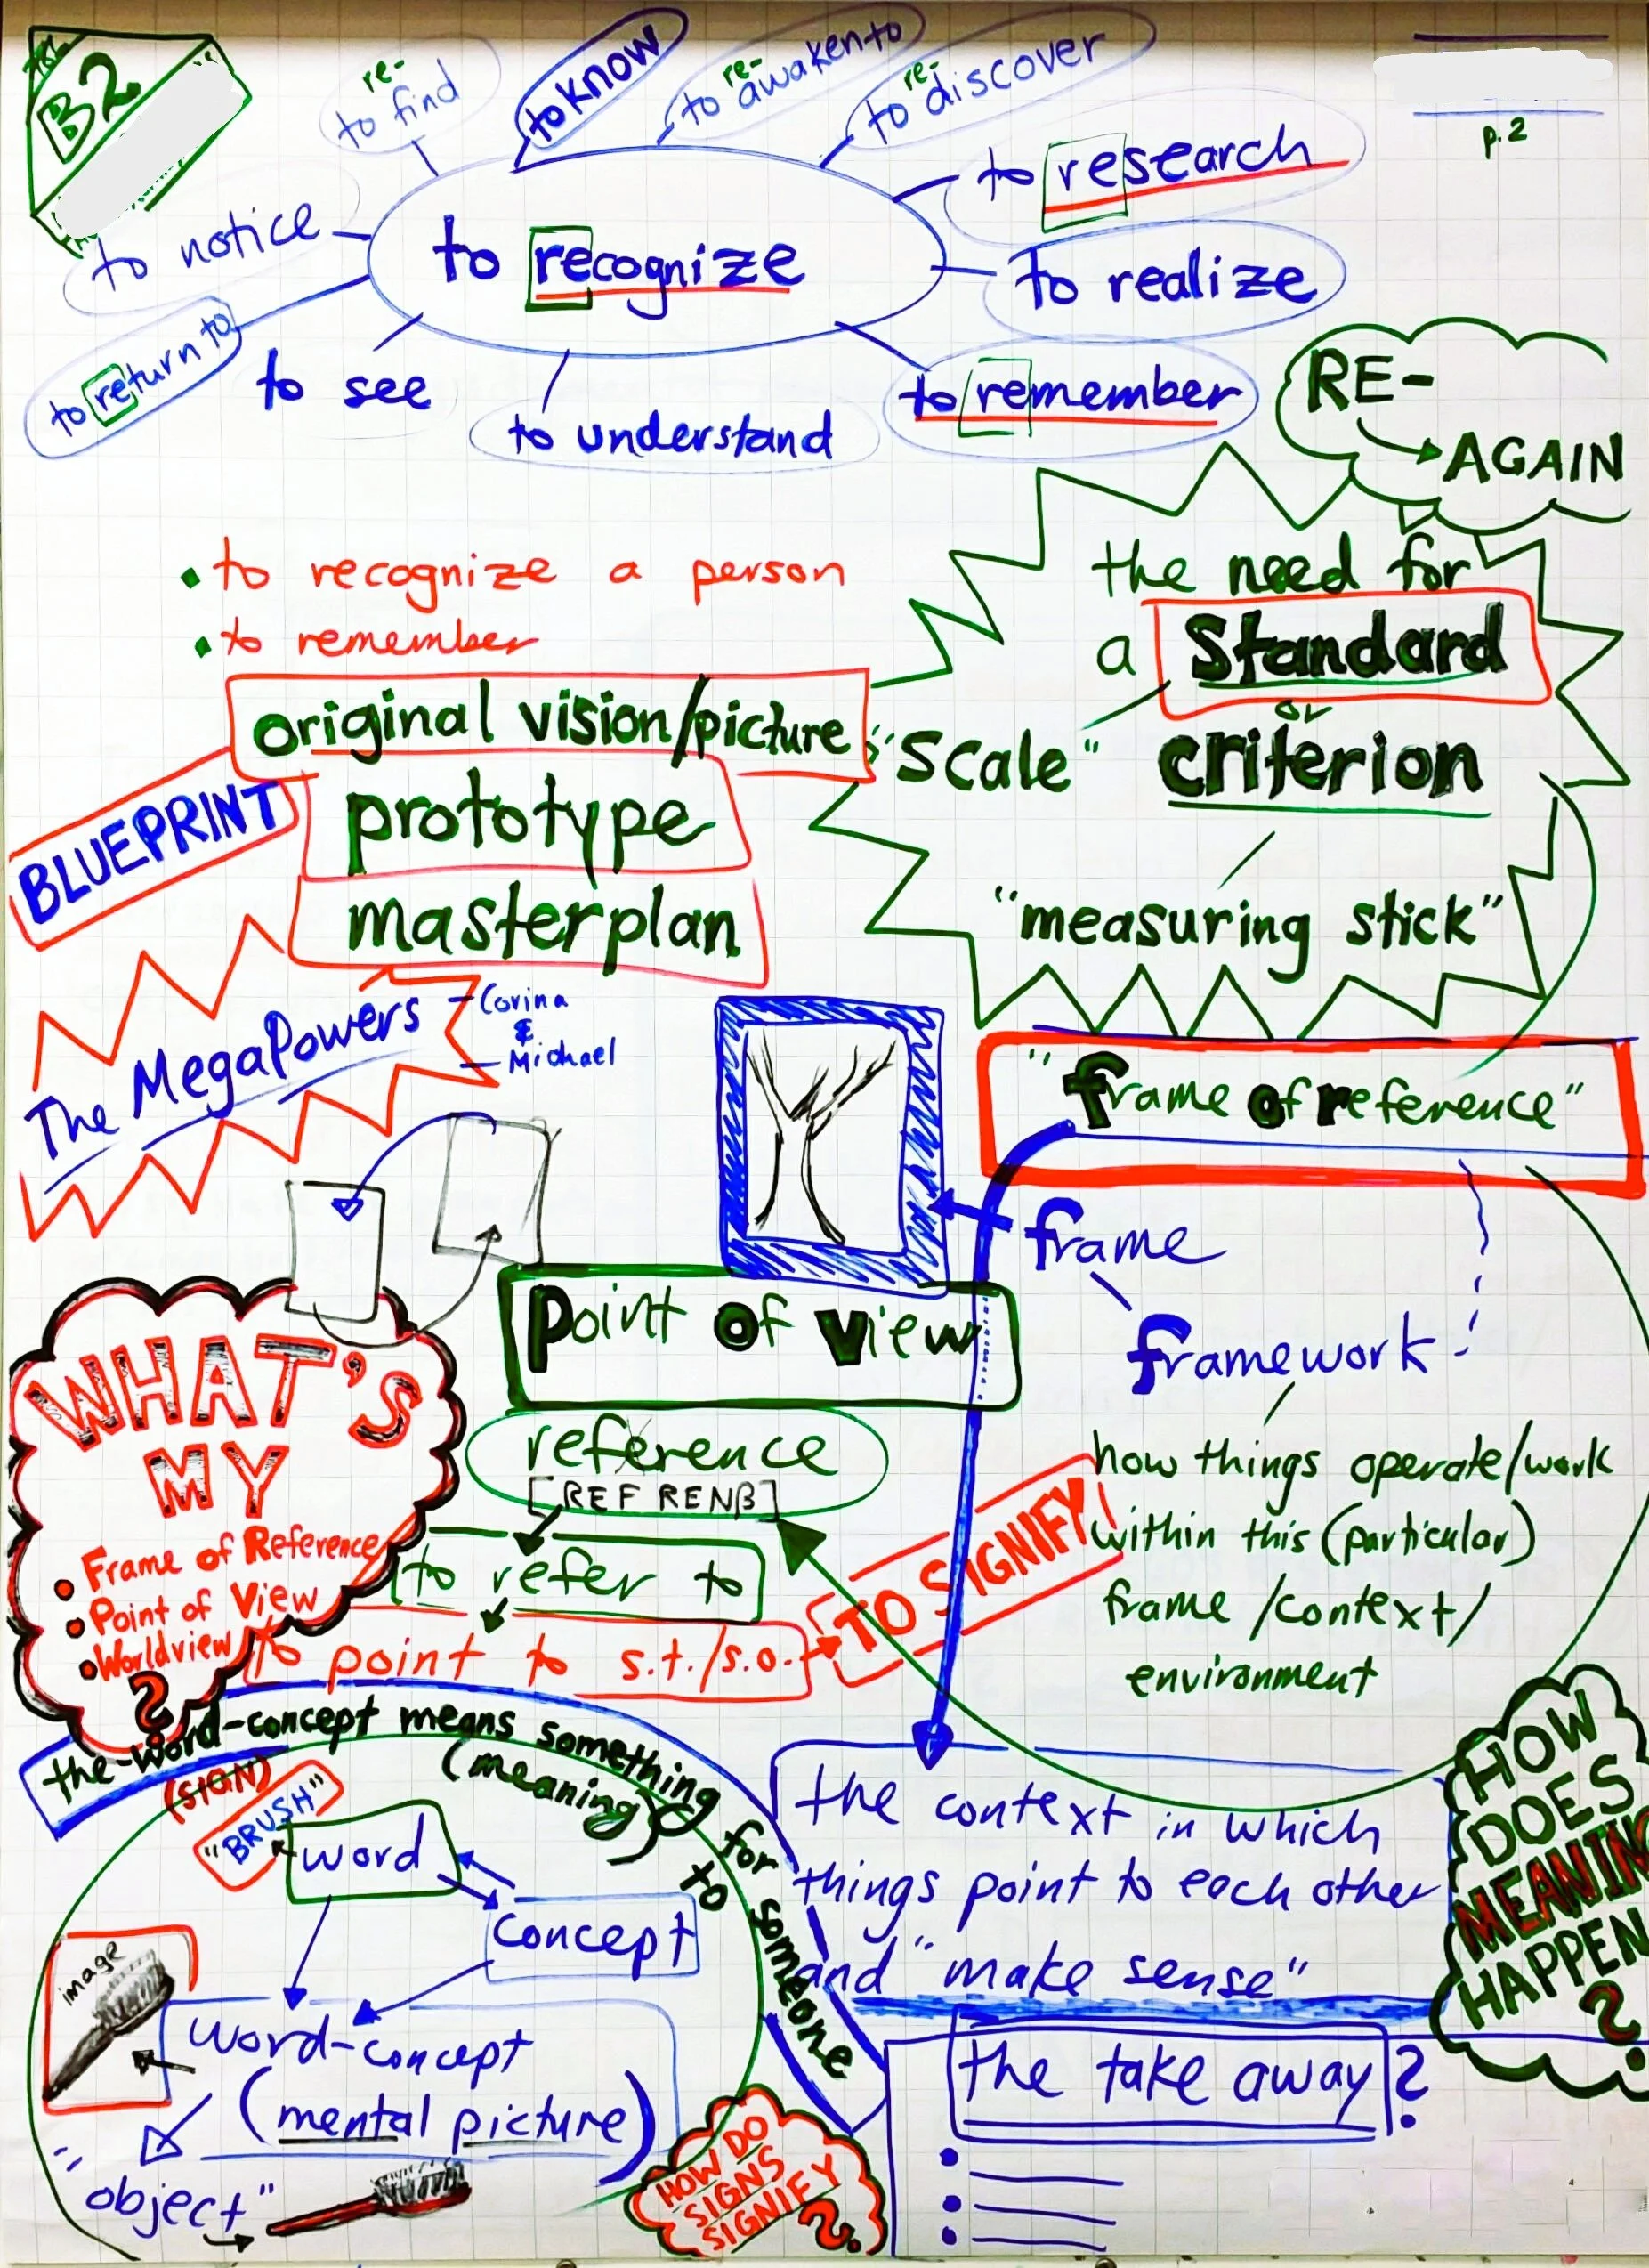 B2
p. 2
re-
to find
to know
re-
to awaken to
re-
to discover
to research
to notice
to recognize
to realize
to return to
to see
to understand
to remember
RE-
AGAIN
• to recognize a person
• to remember
original vision/picture
BLUEPRINT
prototype
masterplan
the need for
a Standard
or
"Scale" criterion
"measuring stick"
The MegaPowers
- Corina
&
- Michael
"frame of reference"
frame
framework
how things operate/work
within this (particular)
frame /context/
environment
Point of view
reference
[REF RENß]
to refer to
to point to s.t./s.o.
TO SIGNIFY
WHAT'S
MY
• Frame of Reference
• Point of View
• Worldview
?
the word-concept means something to someone
(SIGN)
(meaning) for
"BRUSH"
word
concept
image
word-concept
(mental picture)
"object"
HOW DO
SIGNS
SIGNIFY
?
the context in which
things point to each other
and "make sense"
HOW
DOES
MEANIN
HAPPEN
?
the take away?